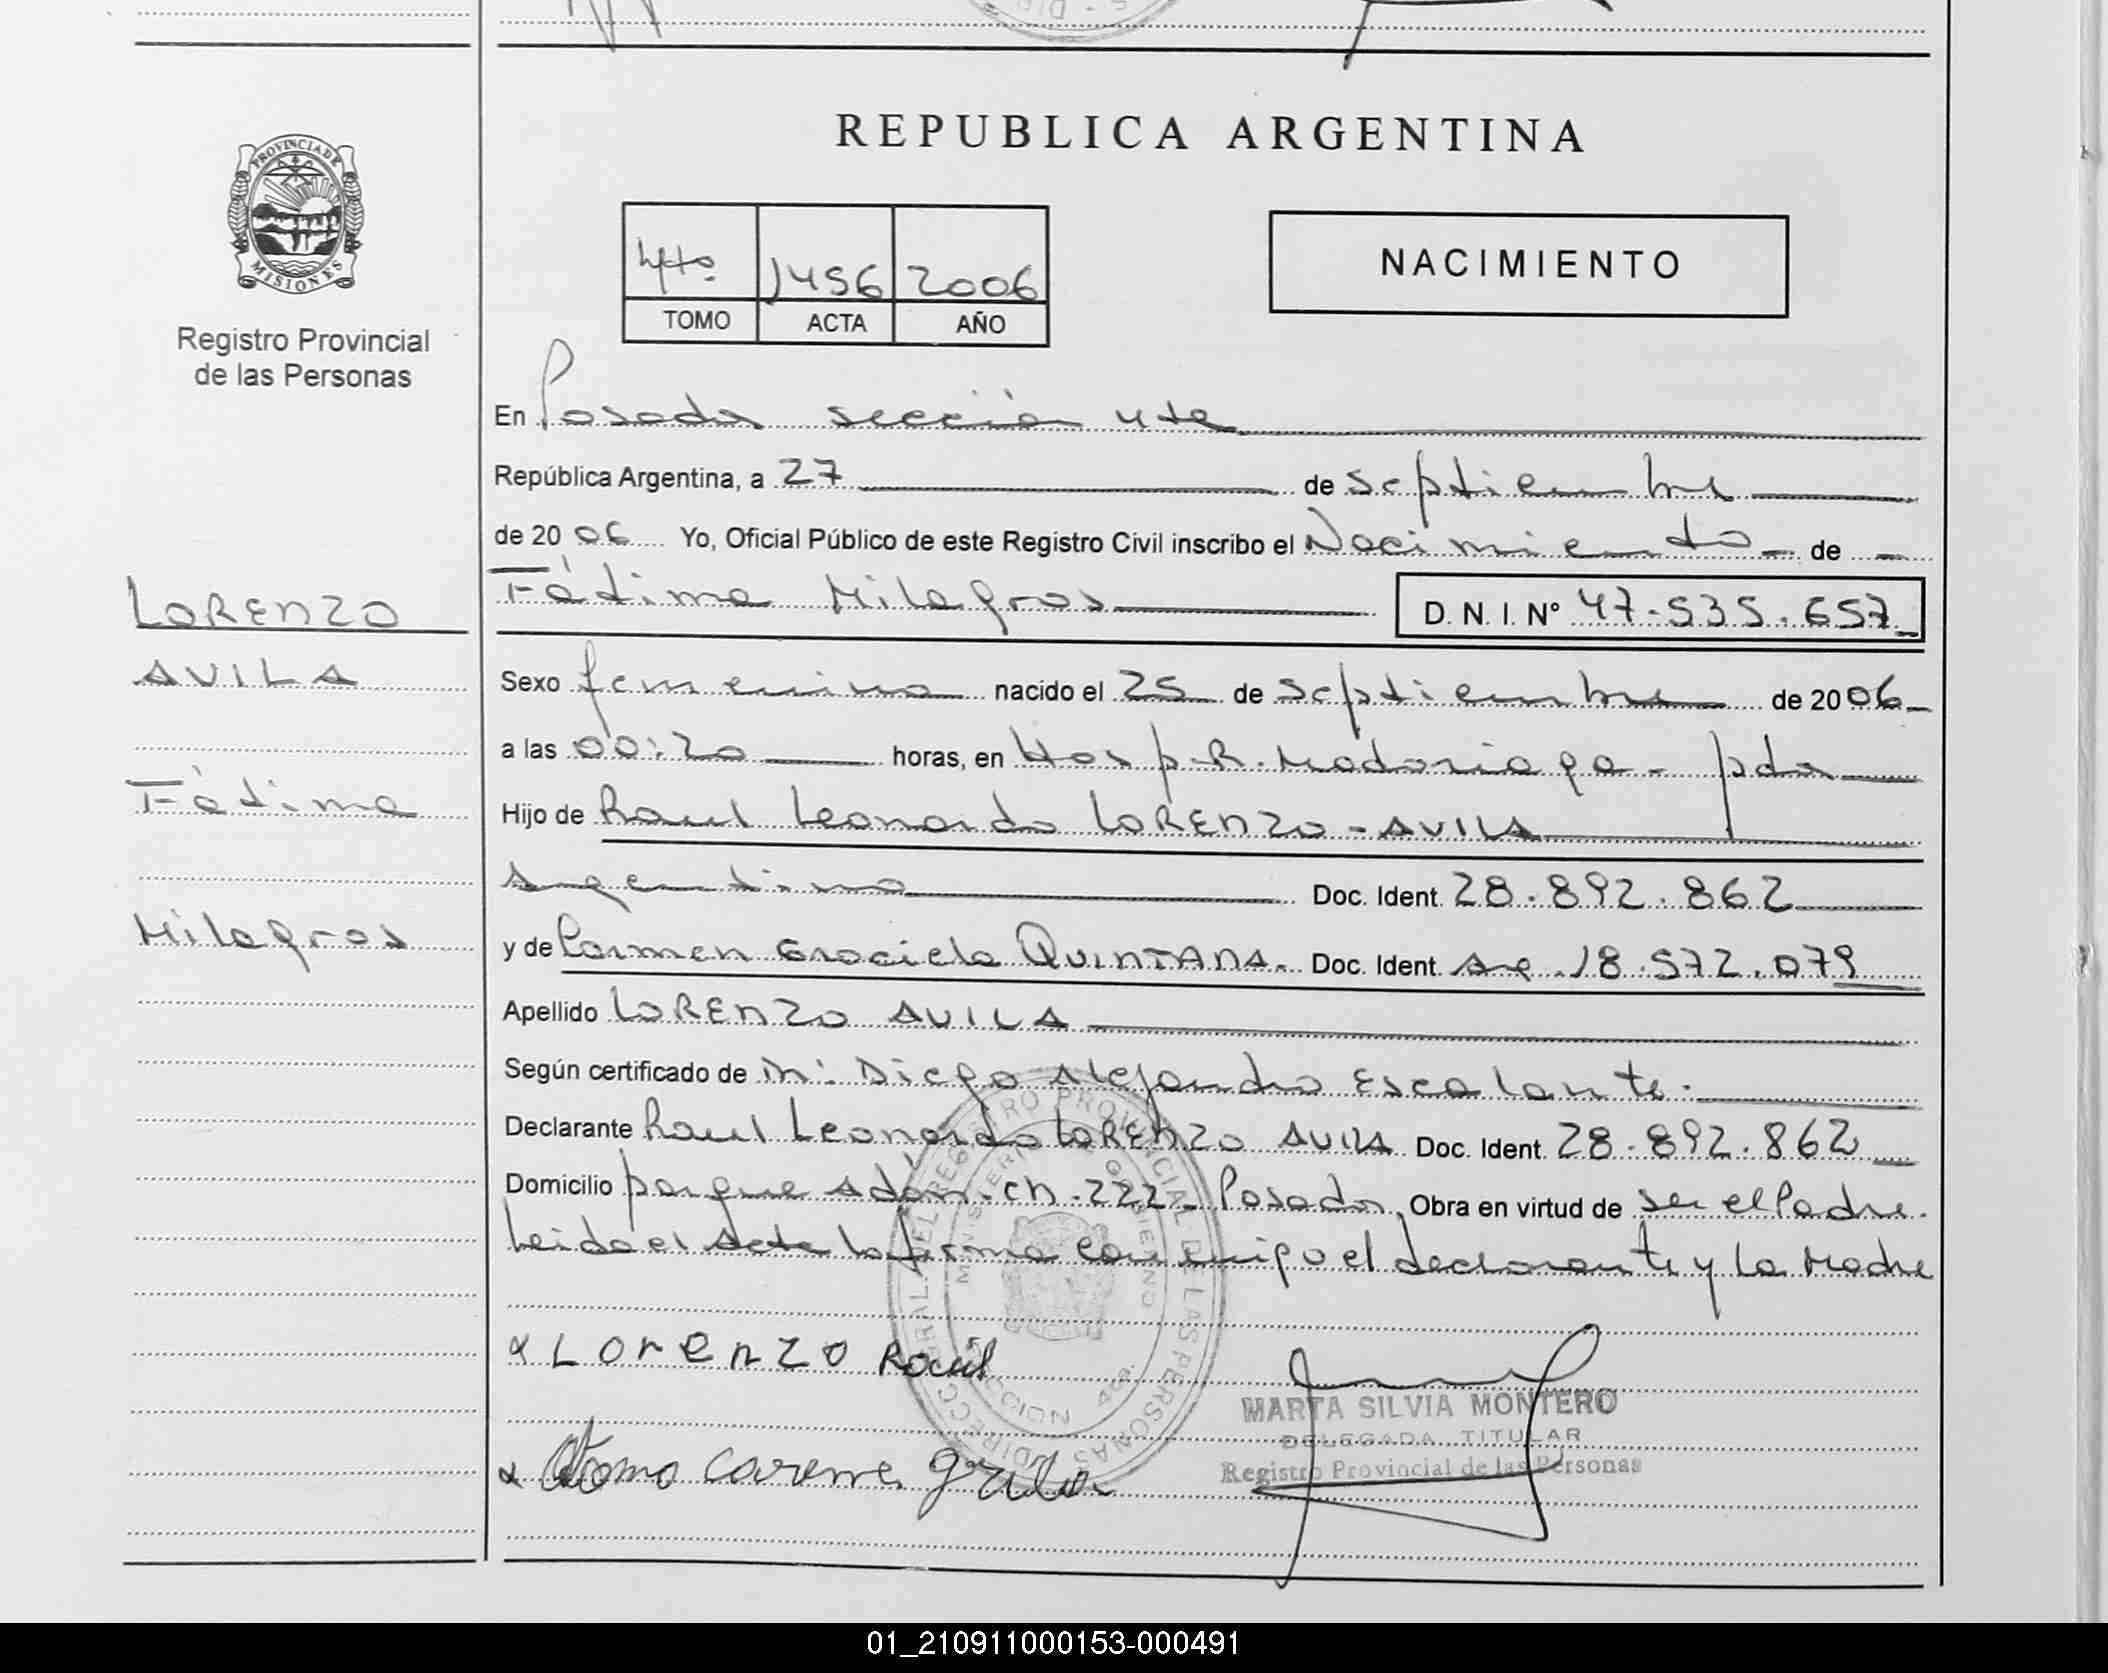 REPUBLICA ARGENTINA
PROVINCIA DE
MISIONES
Registro Provincial
de las Personas
4to. 1456 2006
TOMO ACTA AÑO
NACIMIENTO
En Posadas sección 4ta
República Argentina, a 27 de septiembre
de 20 06 Yo, Oficial Público de este Registro Civil inscribo el Nacimiento de
Fátima Milagros D. N. I. Nº 47.535.657
LORENZO
AVILA
Fátima
Milagros
Sexo femenino nacido el 25 de septiembre de 20 06
a las 00:20 horas, en Hosp. R. Madariaga - pdas
Hijo de Raul Leonardo LORENZO - AVILA
Argentino Doc. Ident. 28.892.862
y de Carmen Graciela QUINTANA. Doc. Ident. Arg. 18.572.079
Apellido LORENZO AVILA
Según certificado de Diego Alejandro Escalante.
Declarante Raul Leonardo LORENZO AVILA Doc. Ident. 28.892.862
Domicilio parque Adam. ch. 222 - Posadas, Obra en virtud de ser el Padre.
Leida el Acta la firma conmigo el declarante y la Madre
LORENZO Raul
MARTA SILVIA MONTERO
DELEGADA TITULAR
Registro Provincial de las Personas
01_210911000153-000491